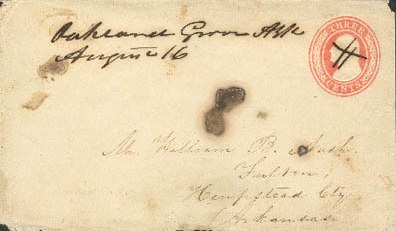 Oakland Grove Ark
August 16
THREE
CENTS
Mr William B.
Fulton,
Hempstead Cty
Arkansas